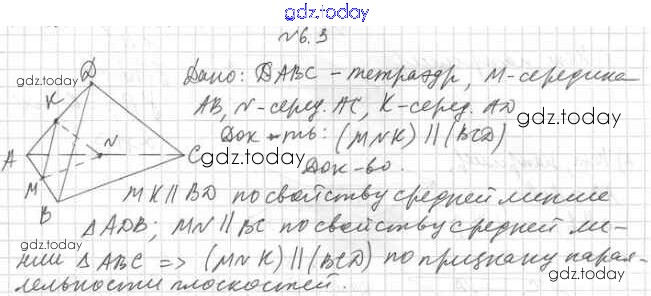 gdz.today
№6.3
D
Дано: DABC - тетраэдр, M-середина
gdz.today
K
AB, N-серед. AC, K-серед. AD
gdz.today
Док-ть: (MNK) || (BCD)
A
N
C
gdz.today
Док-во.
M
B
MK || BD по свойству средней линии
gdz.today
△ADB; MN || BC по свойству средней ли-
нии △ABC => (MNK) || (BCD) по признаку парал-
gdz.today
gdz.today
лельности плоскостей.
gdz.today